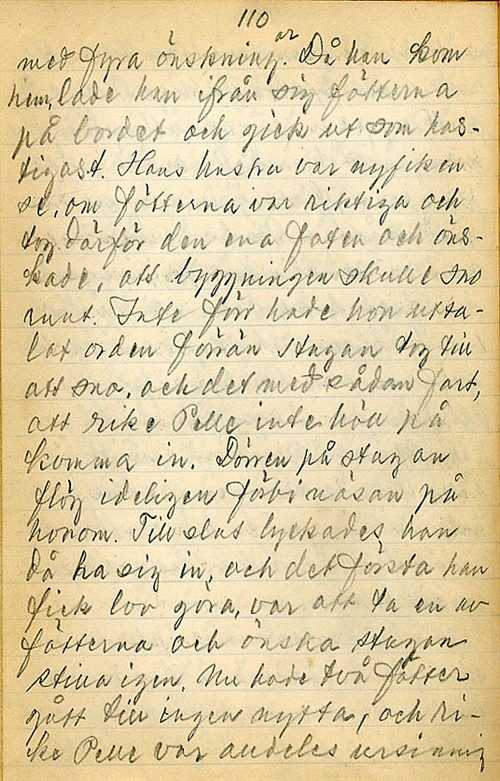 110
med fyra önskningar. Då han kom
hem, lade han ifrån sig fötterna
på bordet och gick ut som has-
tigast. Hans hustru var nyfiken
se, om fötterna var riktiga och
tog därför den ena foten och öns-
kade, att byggningen skulle sno
runt. Inte förr hade hon utta-
lat orden förrän stugan tog till
att sno, och det med sådan fart,
att rike Pelle inte höll på
komma in. Dörren på stugan
flög ideligen förbi näsan på
honom. Till slut lyckades han
då ha sig in, och det första han
fick lov göra, var att ta en av
fötterna och önska stugan
stilla igen. Nu hade två fötter
gått till ingen nytta, och ri-
ke Pelle var alldeles ursinnig